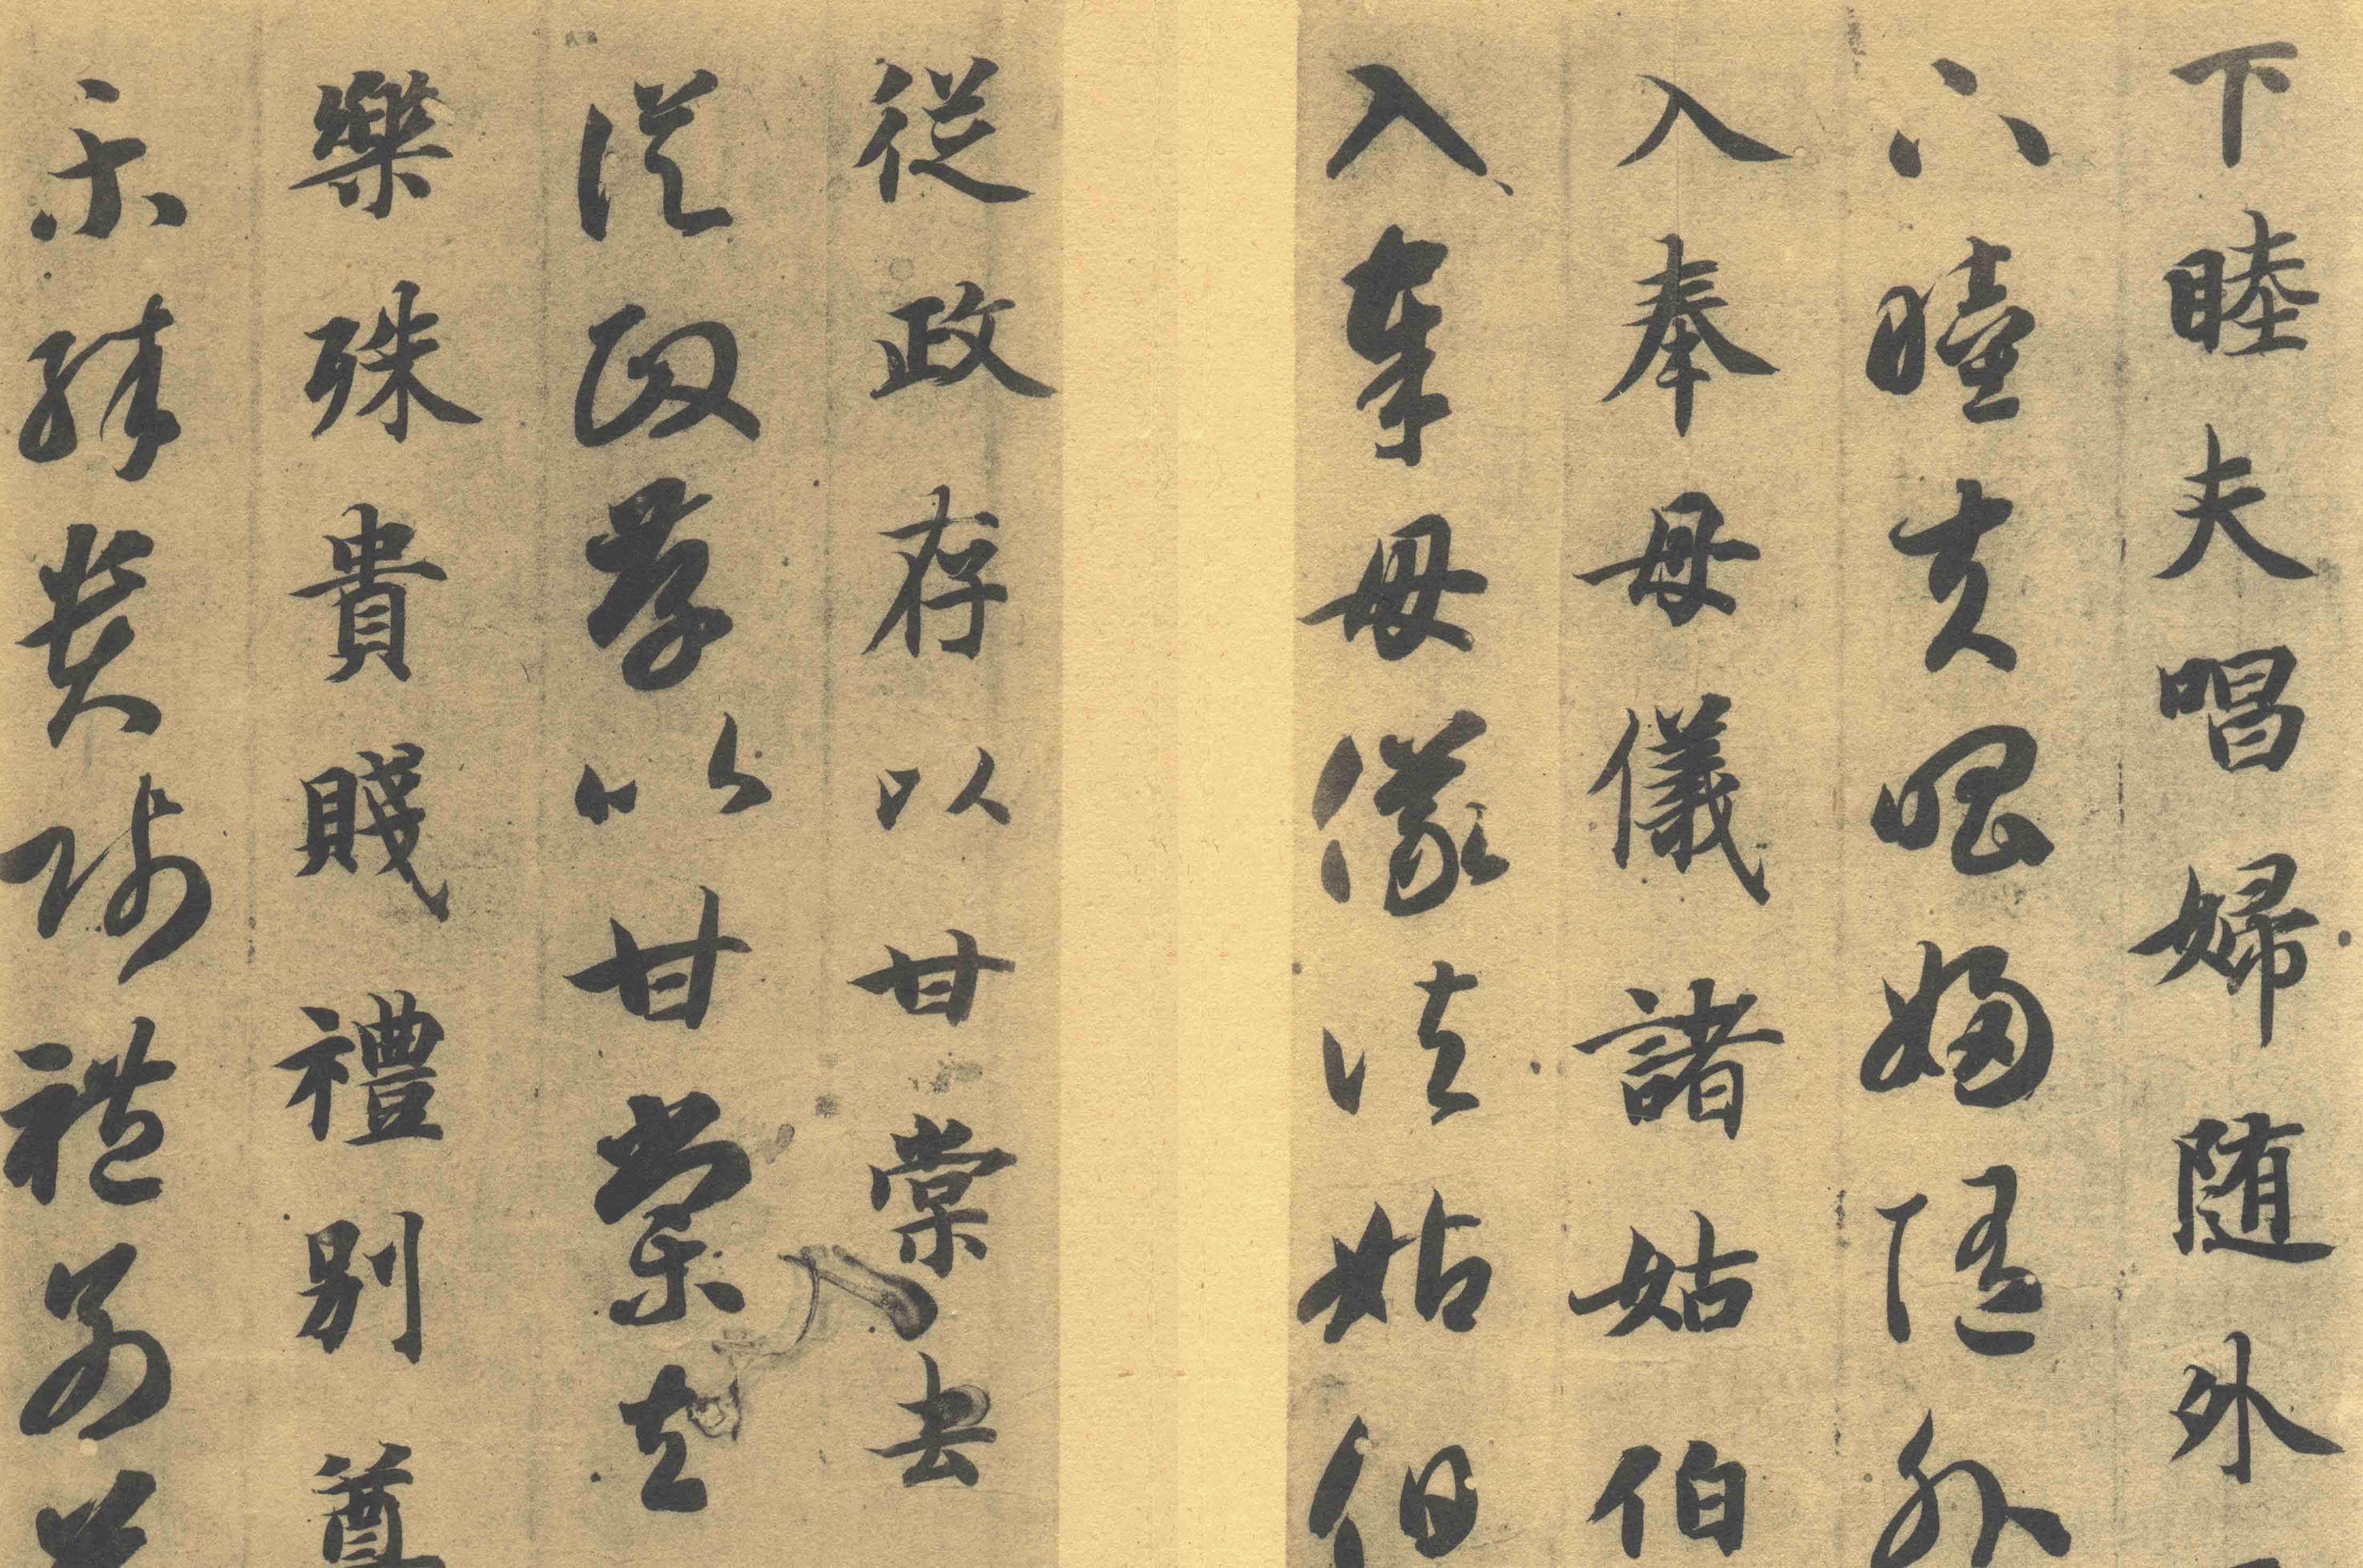 下睦夫唱婦随外
下睦夫唱婦随外
入奉母儀諸姑伯
入奉母儀諸姑伯
従政存以甘棠去
従政存以甘棠去
樂殊貴賤禮別尊
樂殊貴賤禮別尊